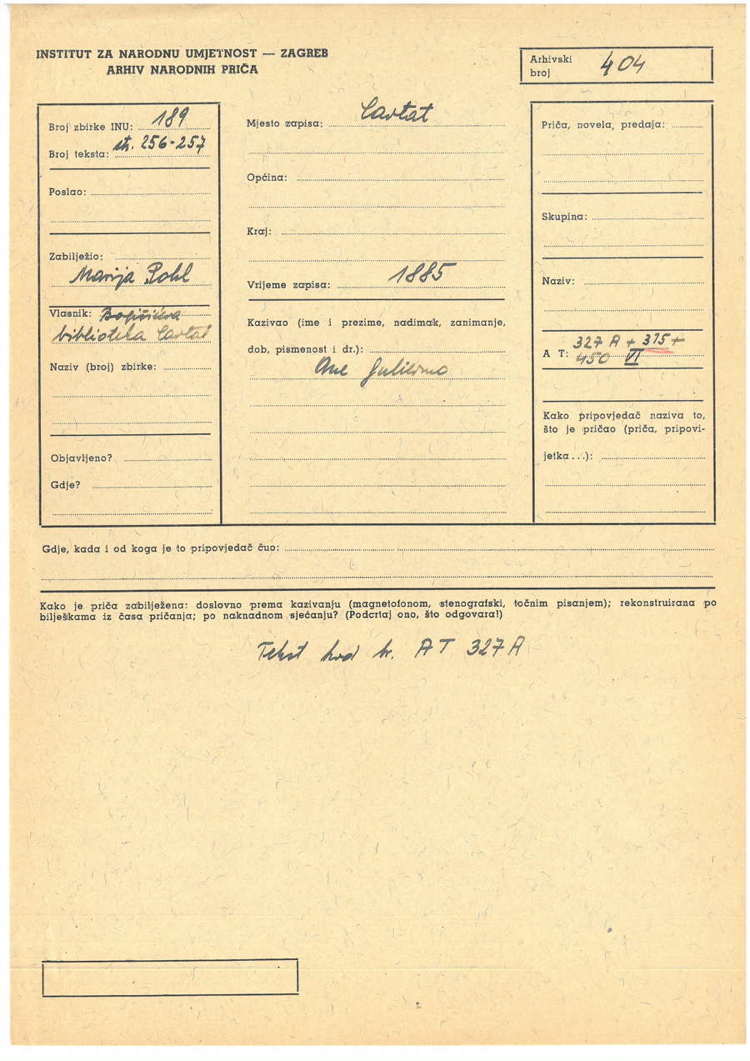 INSTITUT ZA NARODNU UMJETNOST — ZAGREB
ARHIV NARODNIH PRIČA
Arhivski broj 404
Broj zbirke INU: 189
Broj teksta: str. 256-257
Poslao:
Zabilježio:
Marija Pohl
Vlasnik: Bogišićeva
biblioteka Cavtat
Naziv (broj) zbirke:
Objavljeno?
Gdje?
Mjesto zapisa: Cavtat
Općina:
Kraj:
Vrijeme zapisa: 1885
Kazivao (ime i prezime, nadimak, zanimanje,
dob, pismenost i dr.):
Ane
Priča, novela, predaja:
Skupina:
Naziv:
A T: 327 A + 315 +
450 VI
Kako pripovjedač naziva to,
što je pričao (priča, pripovi-
jetka . . .):
Gdje, kada i od koga je to pripovjedač čuo:
Kako je priča zabilježena: doslovno prema kazivanju (magnetofonom, stenografski, točnim pisanjem); rekonstruirana po
bilješkama iz časa pričanja; po naknadnom sjećanju? (Podcrtaj ono, što odgovara!)
Tekst kod br. AT 327 A